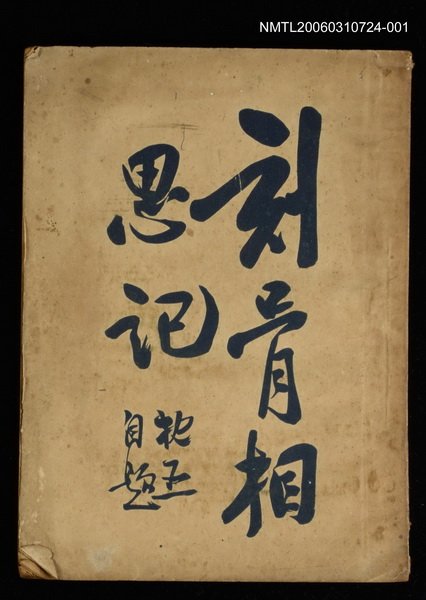 NMTL20060310724-001
刻骨相
思記
枕五
自題